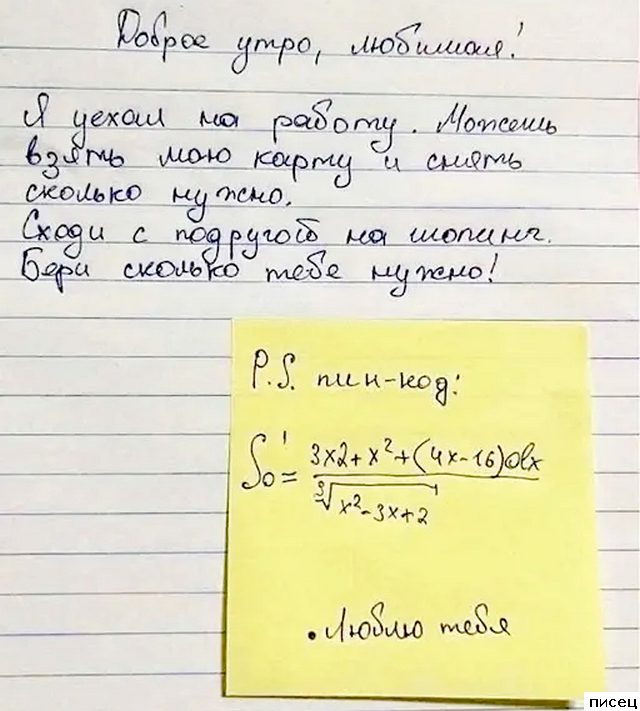 Доброе утро, любимая!
Я уехал на работу. Можешь
взять мою карту и снять
сколько нужно.
Сходи с подругой на шопинг.
Бери сколько тебе нужно!
P.S. пин-код:
∫₀¹ = (3x2+x²+(4x-16)dx) / ∛(x²-3x+2)
. Люблю тебя
писец